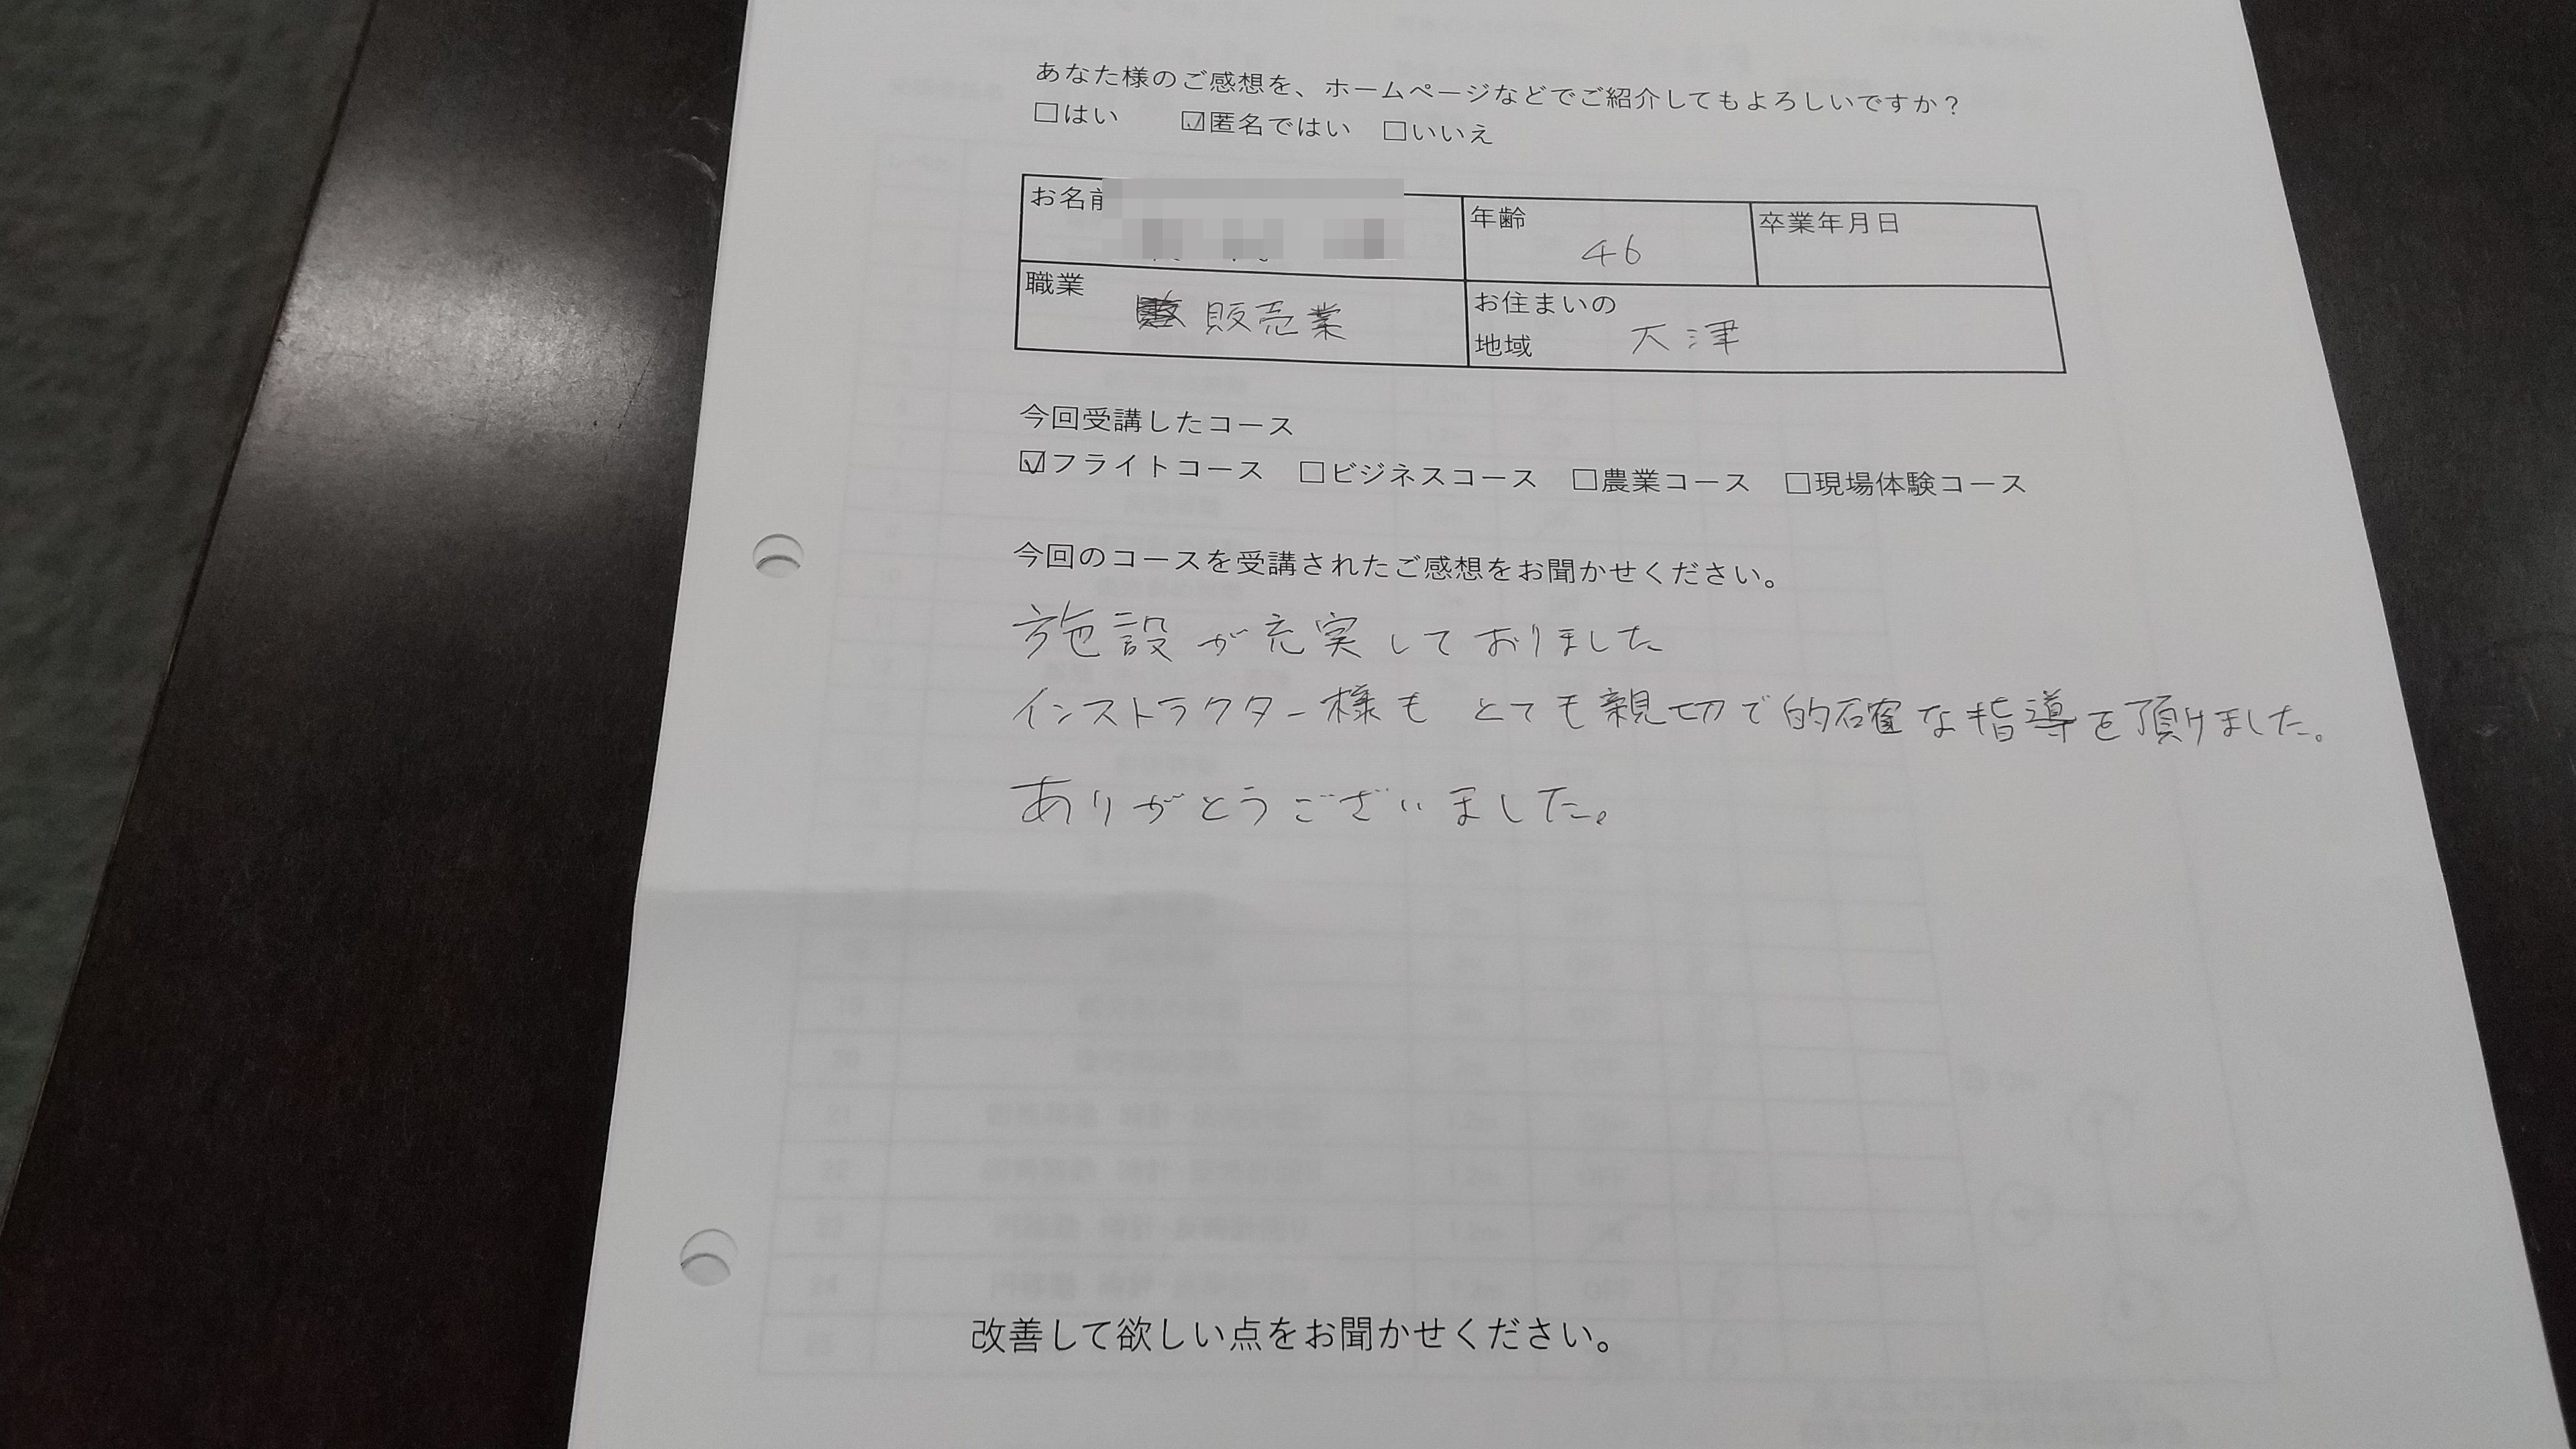 あなた様のご感想を、ホームページなどでご紹介してもよろしいですか？
□はい ☑匿名ではい □いいえ
お名前
年齢 46
卒業年月日
職業 販売業
お住まいの
地域 大津
今回受講したコース
☑フライトコース □ビジネスコース □農業コース □現場体験コース
今回のコースを受講されたご感想をお聞かせください。
施設が充実しておりました
インストラクター様も とても親切で的確な指導を頂けました。
ありがとうございました。
改善して欲しい点をお聞かせください。